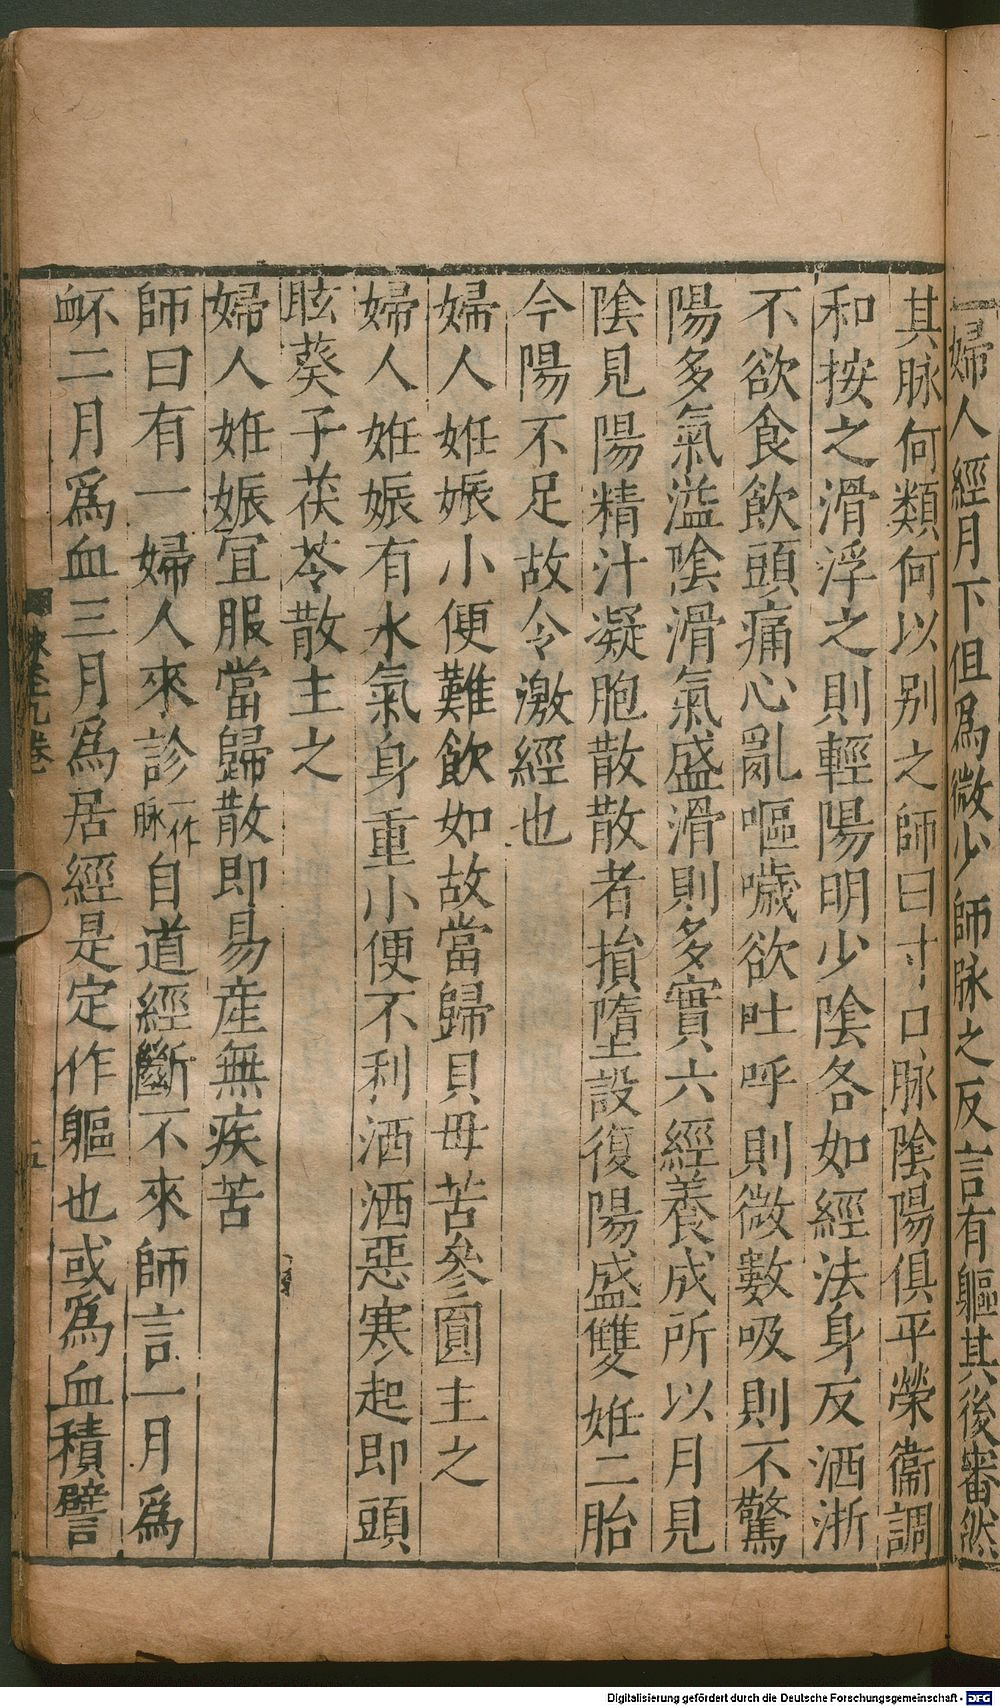 婦人經月下但爲微少師脉之反言有軀其後審然
其脉何類何以别之師曰寸口脉隂陽俱平榮衞調
和按之滑浮之則輕陽明少隂各如經法身反洒淅
不欲食飲頭痛心亂嘔噦欲吐呼則微數吸則不驚
陽多氣溢隂滑氣盛滑則多實六經養成所以月見
隂見陽精汁凝胞散散者損墮設復陽盛雙姙二胎
今陽不足故令激經也
婦人姙娠小便難飲如故當歸貝母苦參圓主之
婦人姙娠有水氣身重小便不利洒洒惡寒起即頭
眩葵子茯苓散主之
婦人姙娠宜服當歸散即易産無疾苦
師曰有一婦人來診一作脉自道經斷不來師言一月爲
衃二月爲血三月爲居經是定作軀也或爲血積譬
脉至九卷
五
Digitalisierung gefördert durch die Deutsche Forschungsgemeinschaft - DFG